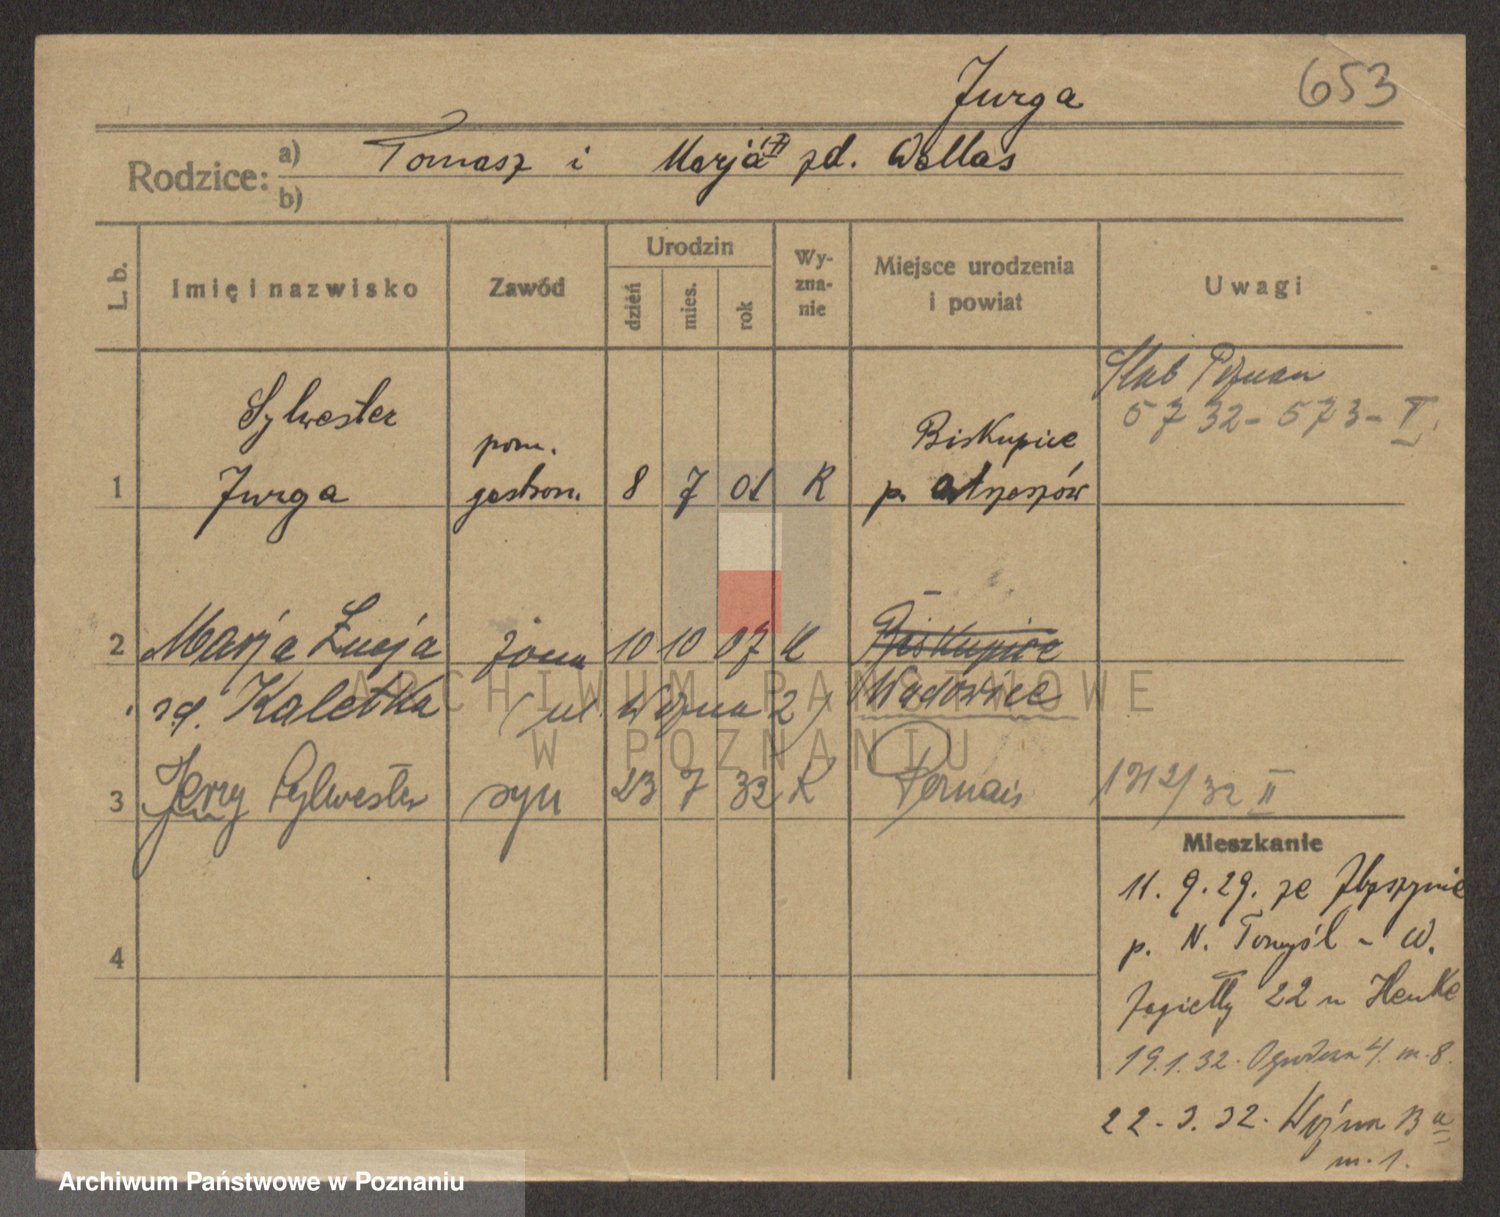 Jurga
653
Rodzice:
a) Tomasz i Marja zd. Wallas
b)
L. b.
Imię i nazwisko
Zawód
Urodzin
dzień
mies.
rok
Wy-
zna-
nie
Miejsce urodzenia
i powiat
Uwagi
Ślub Poznań
5 7 32 - 573 - V
Sylwester
Jurga
1
pom.
gastron.
8 7 01 R
Biskupice
p.
2 Marja Łucja żona 10 10 07 R Biskupice
zd. Kaletka (ul. Woźna 2) Wadowice
3 Jerzy Sylwester syn 23 7 32 R Poznań 1712/32 II
4
Mieszkanie
11. 9. 29. ze Zbąszynia
p. N. Tomyśl - W.
Jagiełły 22 u Henke
19.1.32. Ogrodowa 4. m. 8.
22. 3. 32. Woźna 13 a
m. 1.
ARCHIWUM PAŃSTWOWE
W POZNANIU
Archiwum Państwowe w Poznaniu